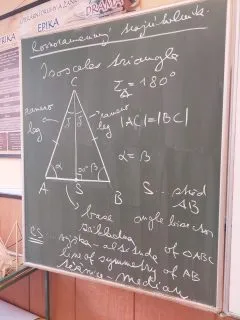 EPIKA
DRAMA
Rovnoramenný trojúholník
Isosceles triangle
C
180°
rameno
leg
rameno
leg
|AC|=|BC|
α = β
α
β
A
S
B
S... stred
AB
base
základňa
angle bisector
CS ... výška - altitude of ΔABC
line of symmetry of AB
ťažnica - median